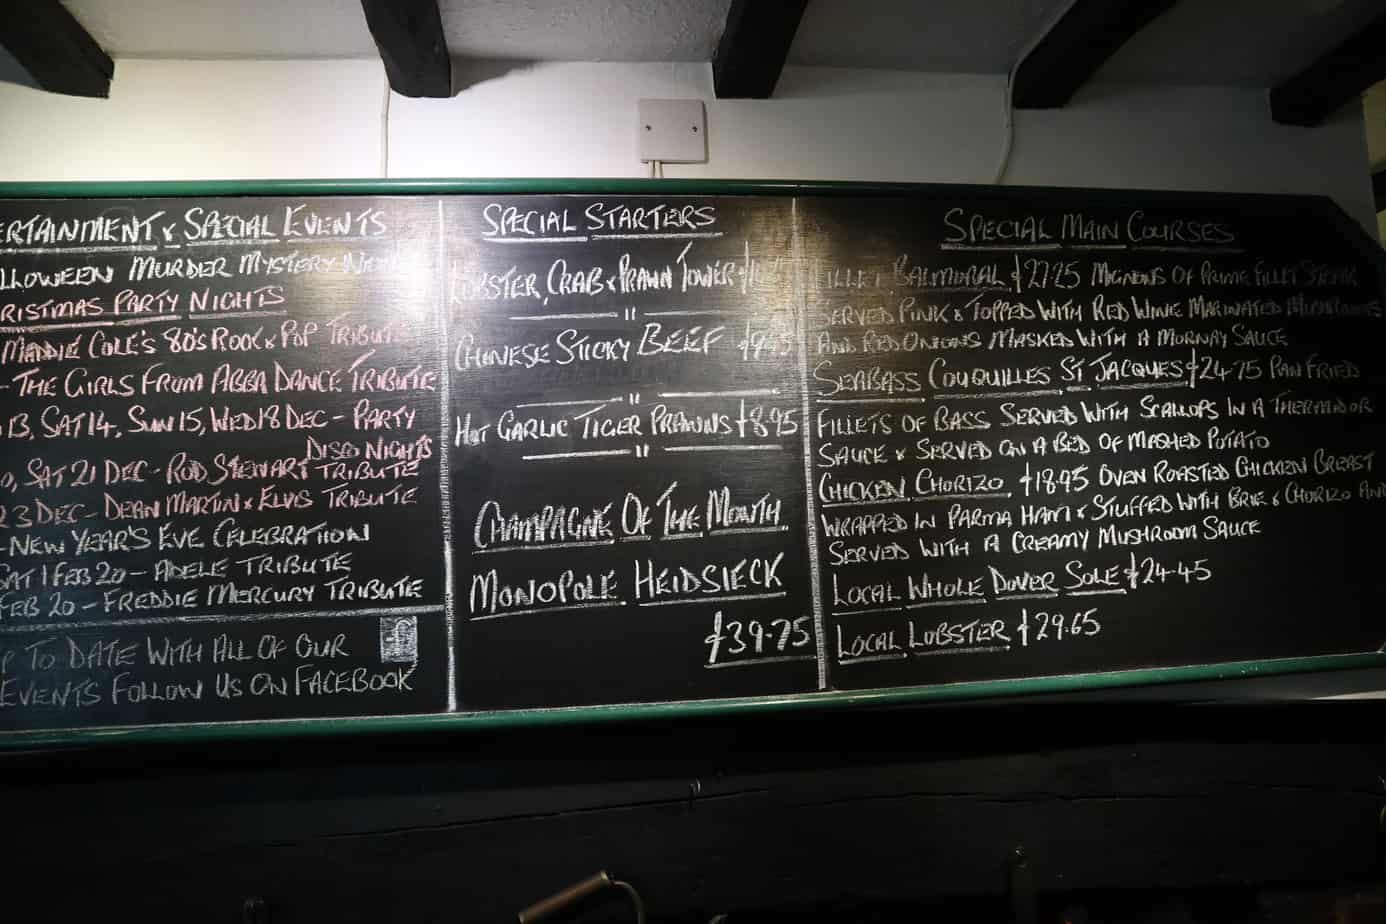 ERTAINMENT & SPECIAL EVENTS
LLOWEEN MURDER MYSTERY NIGHT
RISTMAS PARTY NIGHTS
MANDIE COLE'S 80'S ROCK & POP TRIBUTE
- THE GIRLS FROM ABBA DANCE TRIBUTE
13, SAT 14, SUN 15, WED 18 DEC - PARTY
DISCO NIGHTS
0, SAT 21 DEC - ROD STEWART TRIBUTE
23 DEC - DEAN MARTIN & ELVIS TRIBUTE
- NEW YEAR'S EVE CELEBRATION
SAT 1 FEB 20 - ADELE TRIBUTE
FEB 20 - FREDDIE MERCURY TRIBUTE
P TO DATE WITH ALL OF OUR
EVENTS FOLLOW US ON FACEBOOK
SPECIAL STARTERS
LOBSTER, CRAB & PRAWN TOWER
"
CHINESE STICKY BEEF £9.45
"
HOT GARLIC TIGER PRAWNS £8.95
"
CHAMPAGNE OF THE MONTH
MONOPOLE HEIDSIECK
£39.75
SPECIAL MAIN COURSES
FILLET BALMORAL £27.25 MIGNONS OF PRIME FILLET STEAK
SERVED PINK & TOPPED WITH RED WINE MARINATED MUSHROOMS
AND RED ONIONS MASKED WITH A MORNAY SAUCE
SEABASS COUQUILLES ST JACQUES £24.75 PAN FRIED
FILLETS OF BASS SERVED WITH SCALLOPS IN A THERMIDOR
SAUCE & SERVED ON A BED OF MASHED POTATO
CHICKEN, CHORIZO, £18.95 OVEN ROASTED CHICKEN BREAST
WRAPPED IN PARMA HAM & STUFFED WITH BRIE & CHORIZO AND
SERVED WITH A CREAMY MUSHROOM SAUCE
LOCAL WHOLE DOVER SOLE £24.45
LOCAL LOBSTER £29.65